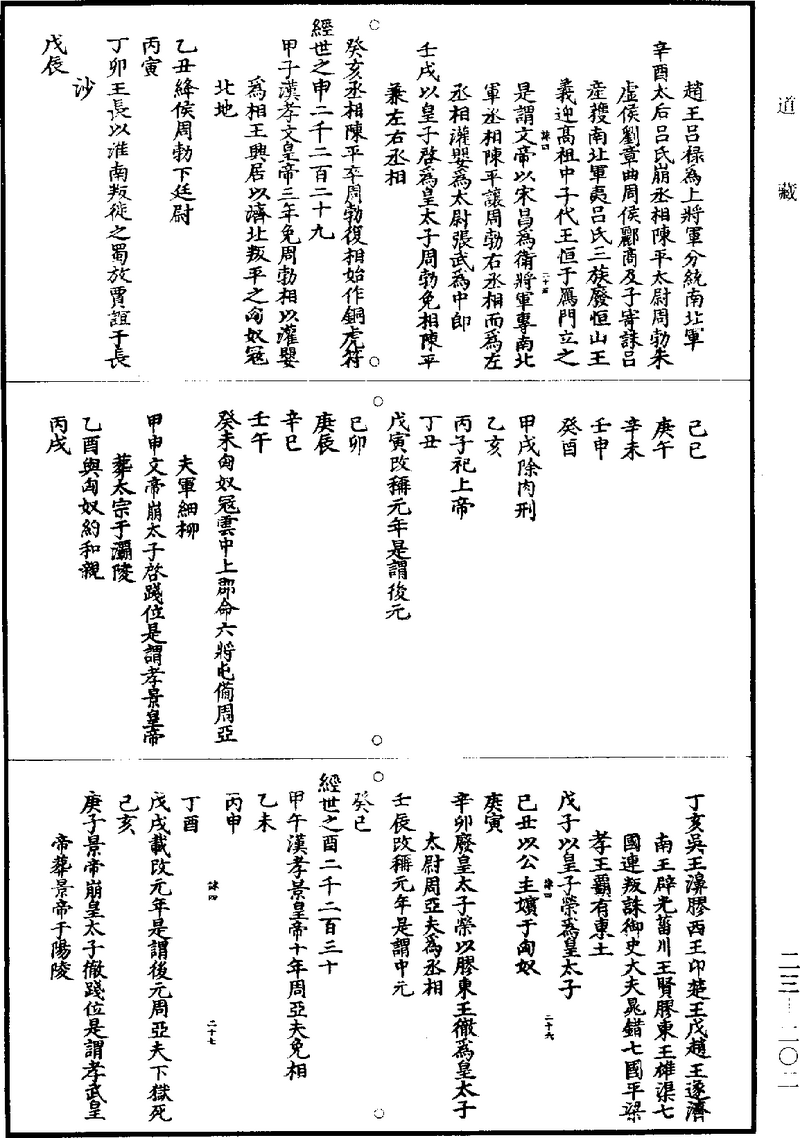 道藏
趙王呂祿為上將軍分統南北軍
辛酉太后呂氏崩丞相陳平太尉周勃朱
虛侯劉章曲周侯酈商及子寄誅呂
產攫南北軍夷呂氏三族廢恒山王
義迎高祖中子代王恒于鴈門立之
是謂文帝以宋昌為衛將軍專南北
軍丞相陳平讓周勃右丞相而為左
丞相灌嬰為太尉張武為中郎
壬戌以皇子啓為皇太子周勃免相陳平
兼左右丞相
癸亥丞相陳平卒周勃復相始作銅虎符
經世之申二千二百二十九
甲子漢孝文皇帝三年免周勃相以灌嬰
為相王興居以濟北叛平之匈奴寇
北地
乙丑絳侯周勃下廷尉
丙寅
丁卯王長以淮南叛徙之蜀放賈誼于長
沙
戊辰
己巳
庚午
辛未
壬申
癸酉
甲戌除肉刑
乙亥
丙子祀上帝
丁丑
戊寅改稱元年是謂後元
己卯
庚辰
辛巳
壬午
癸未匈奴寇雲中上郡命六將屯備周亞
夫軍細柳
甲申文帝崩太子啓踐位是謂孝景皇帝
葬太宗于灞陵
乙酉與匈奴約和親
丙戌
丁亥吳王濞膠西王卬楚王戊趙王遂濟
南王辟光菑川王賢膠東王雄渠七
國連叛誅御史大夫晁錯七國平梁
孝王霸有東土
戊子以皇子榮為皇太子
己丑以公主嬪于匈奴
庚寅
辛卯廢皇太子榮以膠東王徹為皇太子
太尉周亞夫為丞相
壬辰改稱元年是謂中元
癸巳
經世之酉二千二百三十
甲午漢孝景皇帝十年周亞夫免相
乙未
丙申
丁酉
戊戌載改元年是謂後元周亞夫下獄死
己亥
庚子景帝崩皇太子徹踐位是謂孝武皇
帝葬景帝于陽陵
二三—二〇二